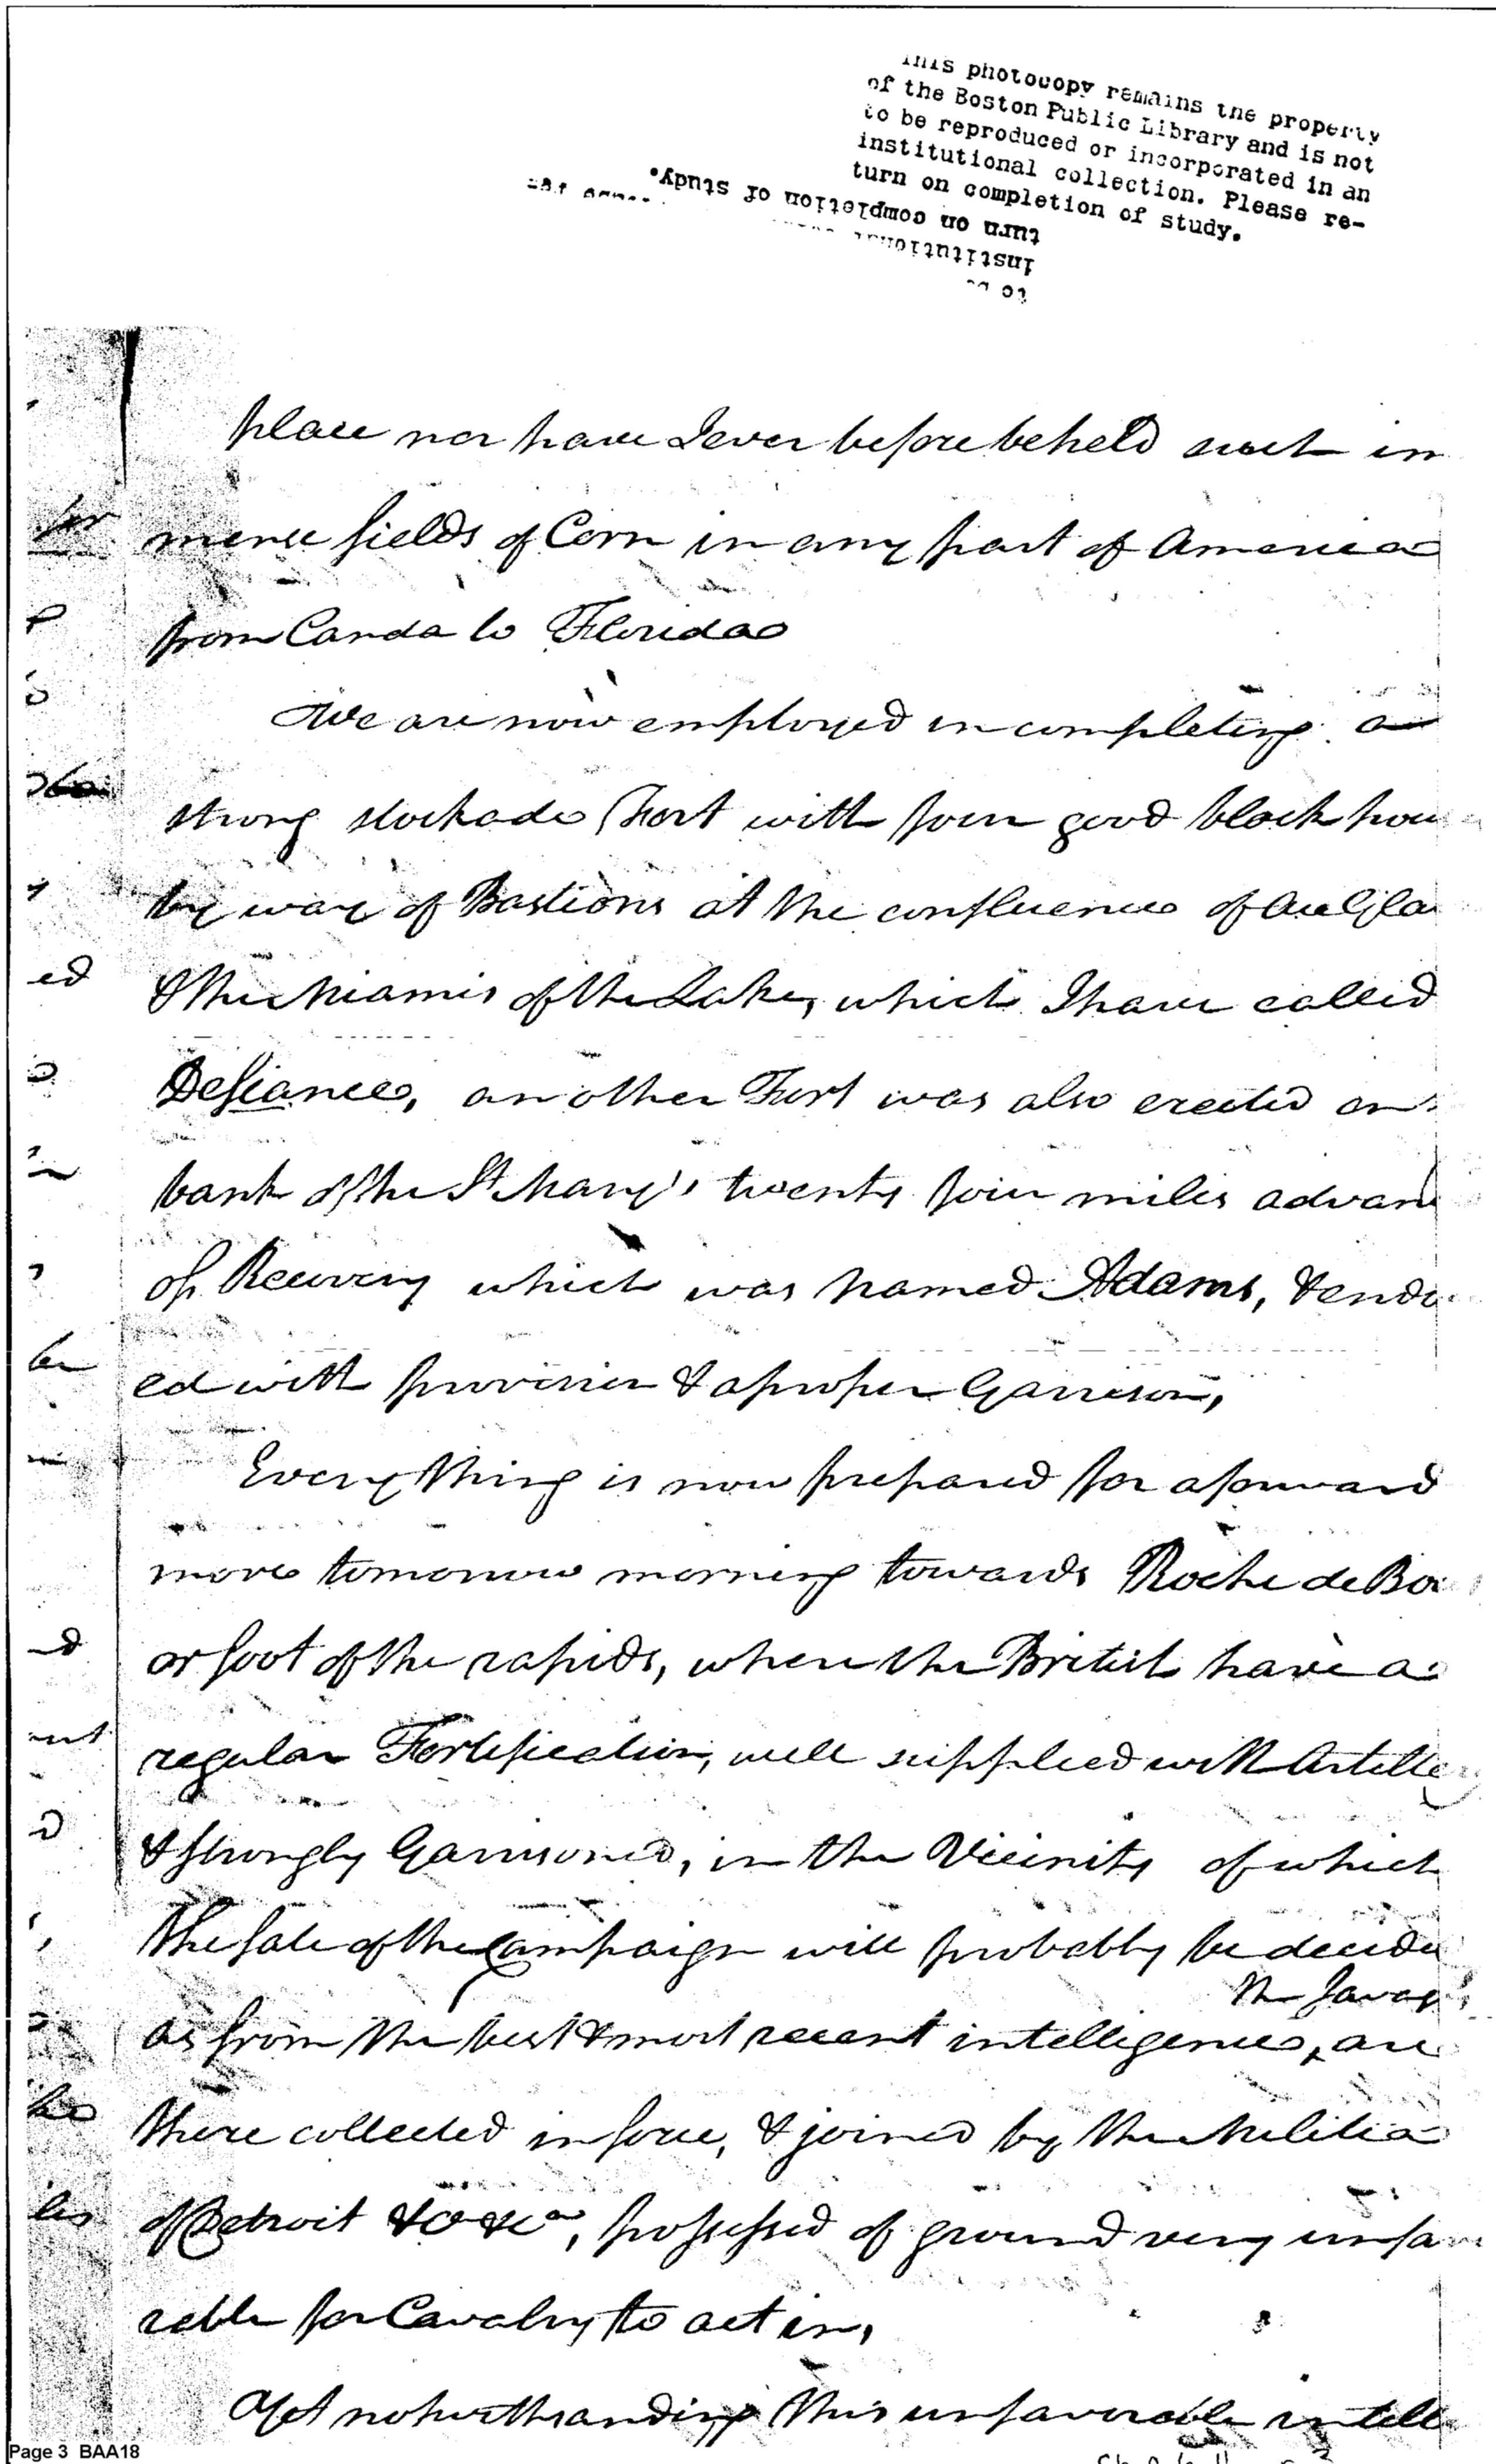 This photocopy remains the property
of the Boston Public Library and is not
to be reproduced or incorporated in an
institutional collection. Please re-
turn on completion of study.
turn on completion of study.
institutional
place nor have I ever before beheld such im
mense fields of Corn in any part of America
from Canda to Florida
We are now employed in completing a
strong stockade Fort with four good block hou
by way of Bastions at the confluence of Au Gla
& the Miamis of the Lake, which I have called
Defiance, another Fort was also erected on
bank of the St Mary's twenty four miles advan
of Recovery which was named Adams, & endo
ed with provision & a proper Garrison,
Every thing is now prepared for a forward
move tomorrow morning towards Roche de Bo
or foot of the rapids, where the British have a
regular Fortification, well supplied with Artille
& strongly Garrisoned, in the Vicinity of which
the fate of the Campaign will probably be decide
the Savag
as from the best & most recent intelligence, are
there collected in force, & joined by the Militia
of Detroit &c &ca, possessed of ground very unfavo
rable for Cavalry to act in,
Yet notwithstanding this unfavorable intelle
for
ed
be
nd
ent
les
Page 3 BAA18